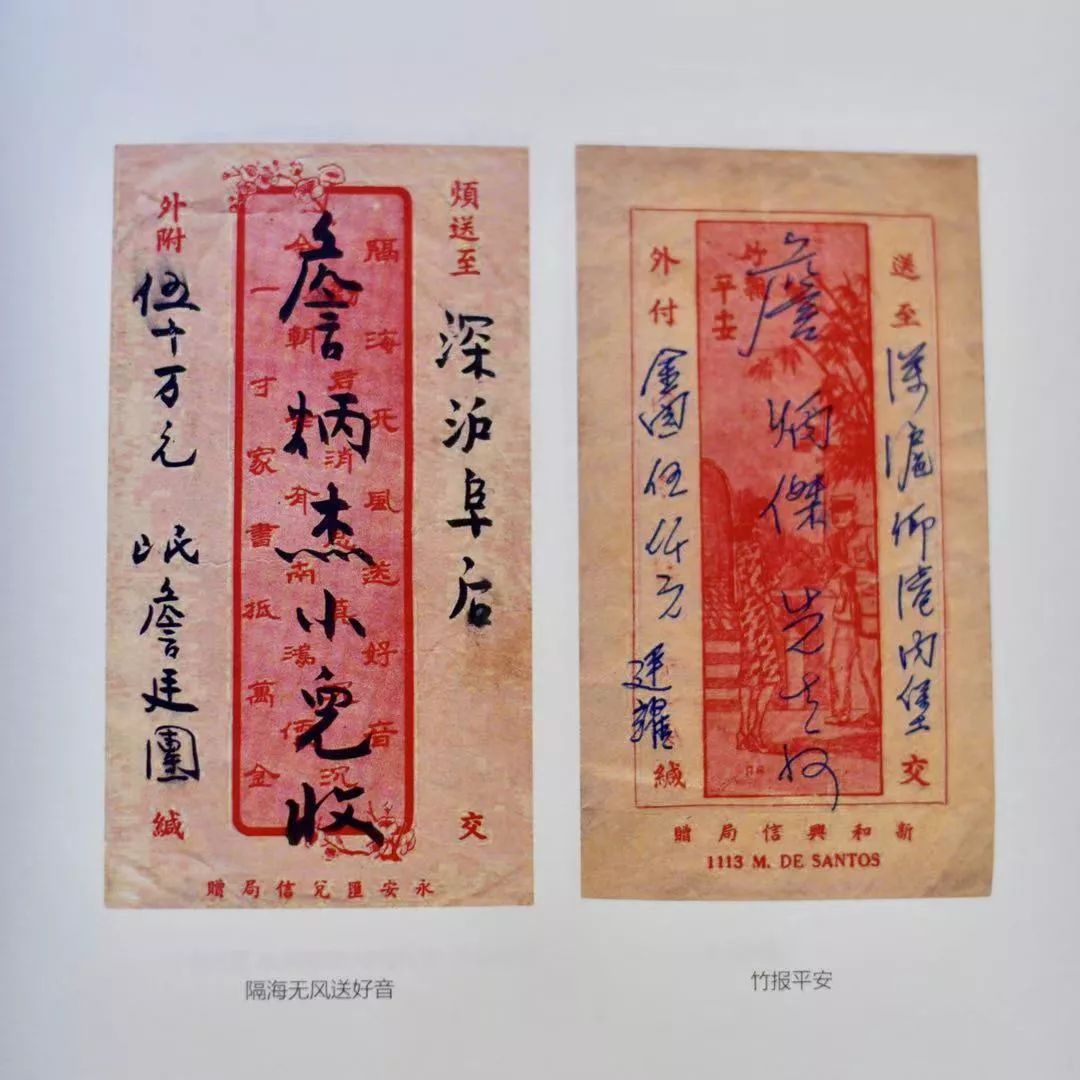 煩送至 深沪阜后 交
隔海无風送好音
一寸家書抵萬金
詹炳杰小兒收
外附 伍十万元 岷詹廷團 緘
永安匯兌信局贈
隔海无风送好音
送至 深滬仰港內堡 交
竹報
平安
詹炳傑先生
外付 金圓伍仟元 廷耀 緘
新和興信局贈
1113 M. DE SANTOS
竹报平安